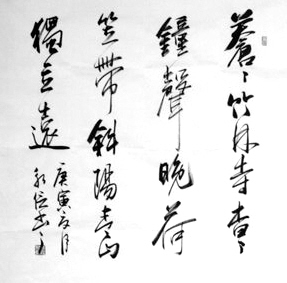 蒼〻竹林寺杳〻
鐘聲晚荷
笠帶斜陽青山
獨歸遠
庚寅夏月
書